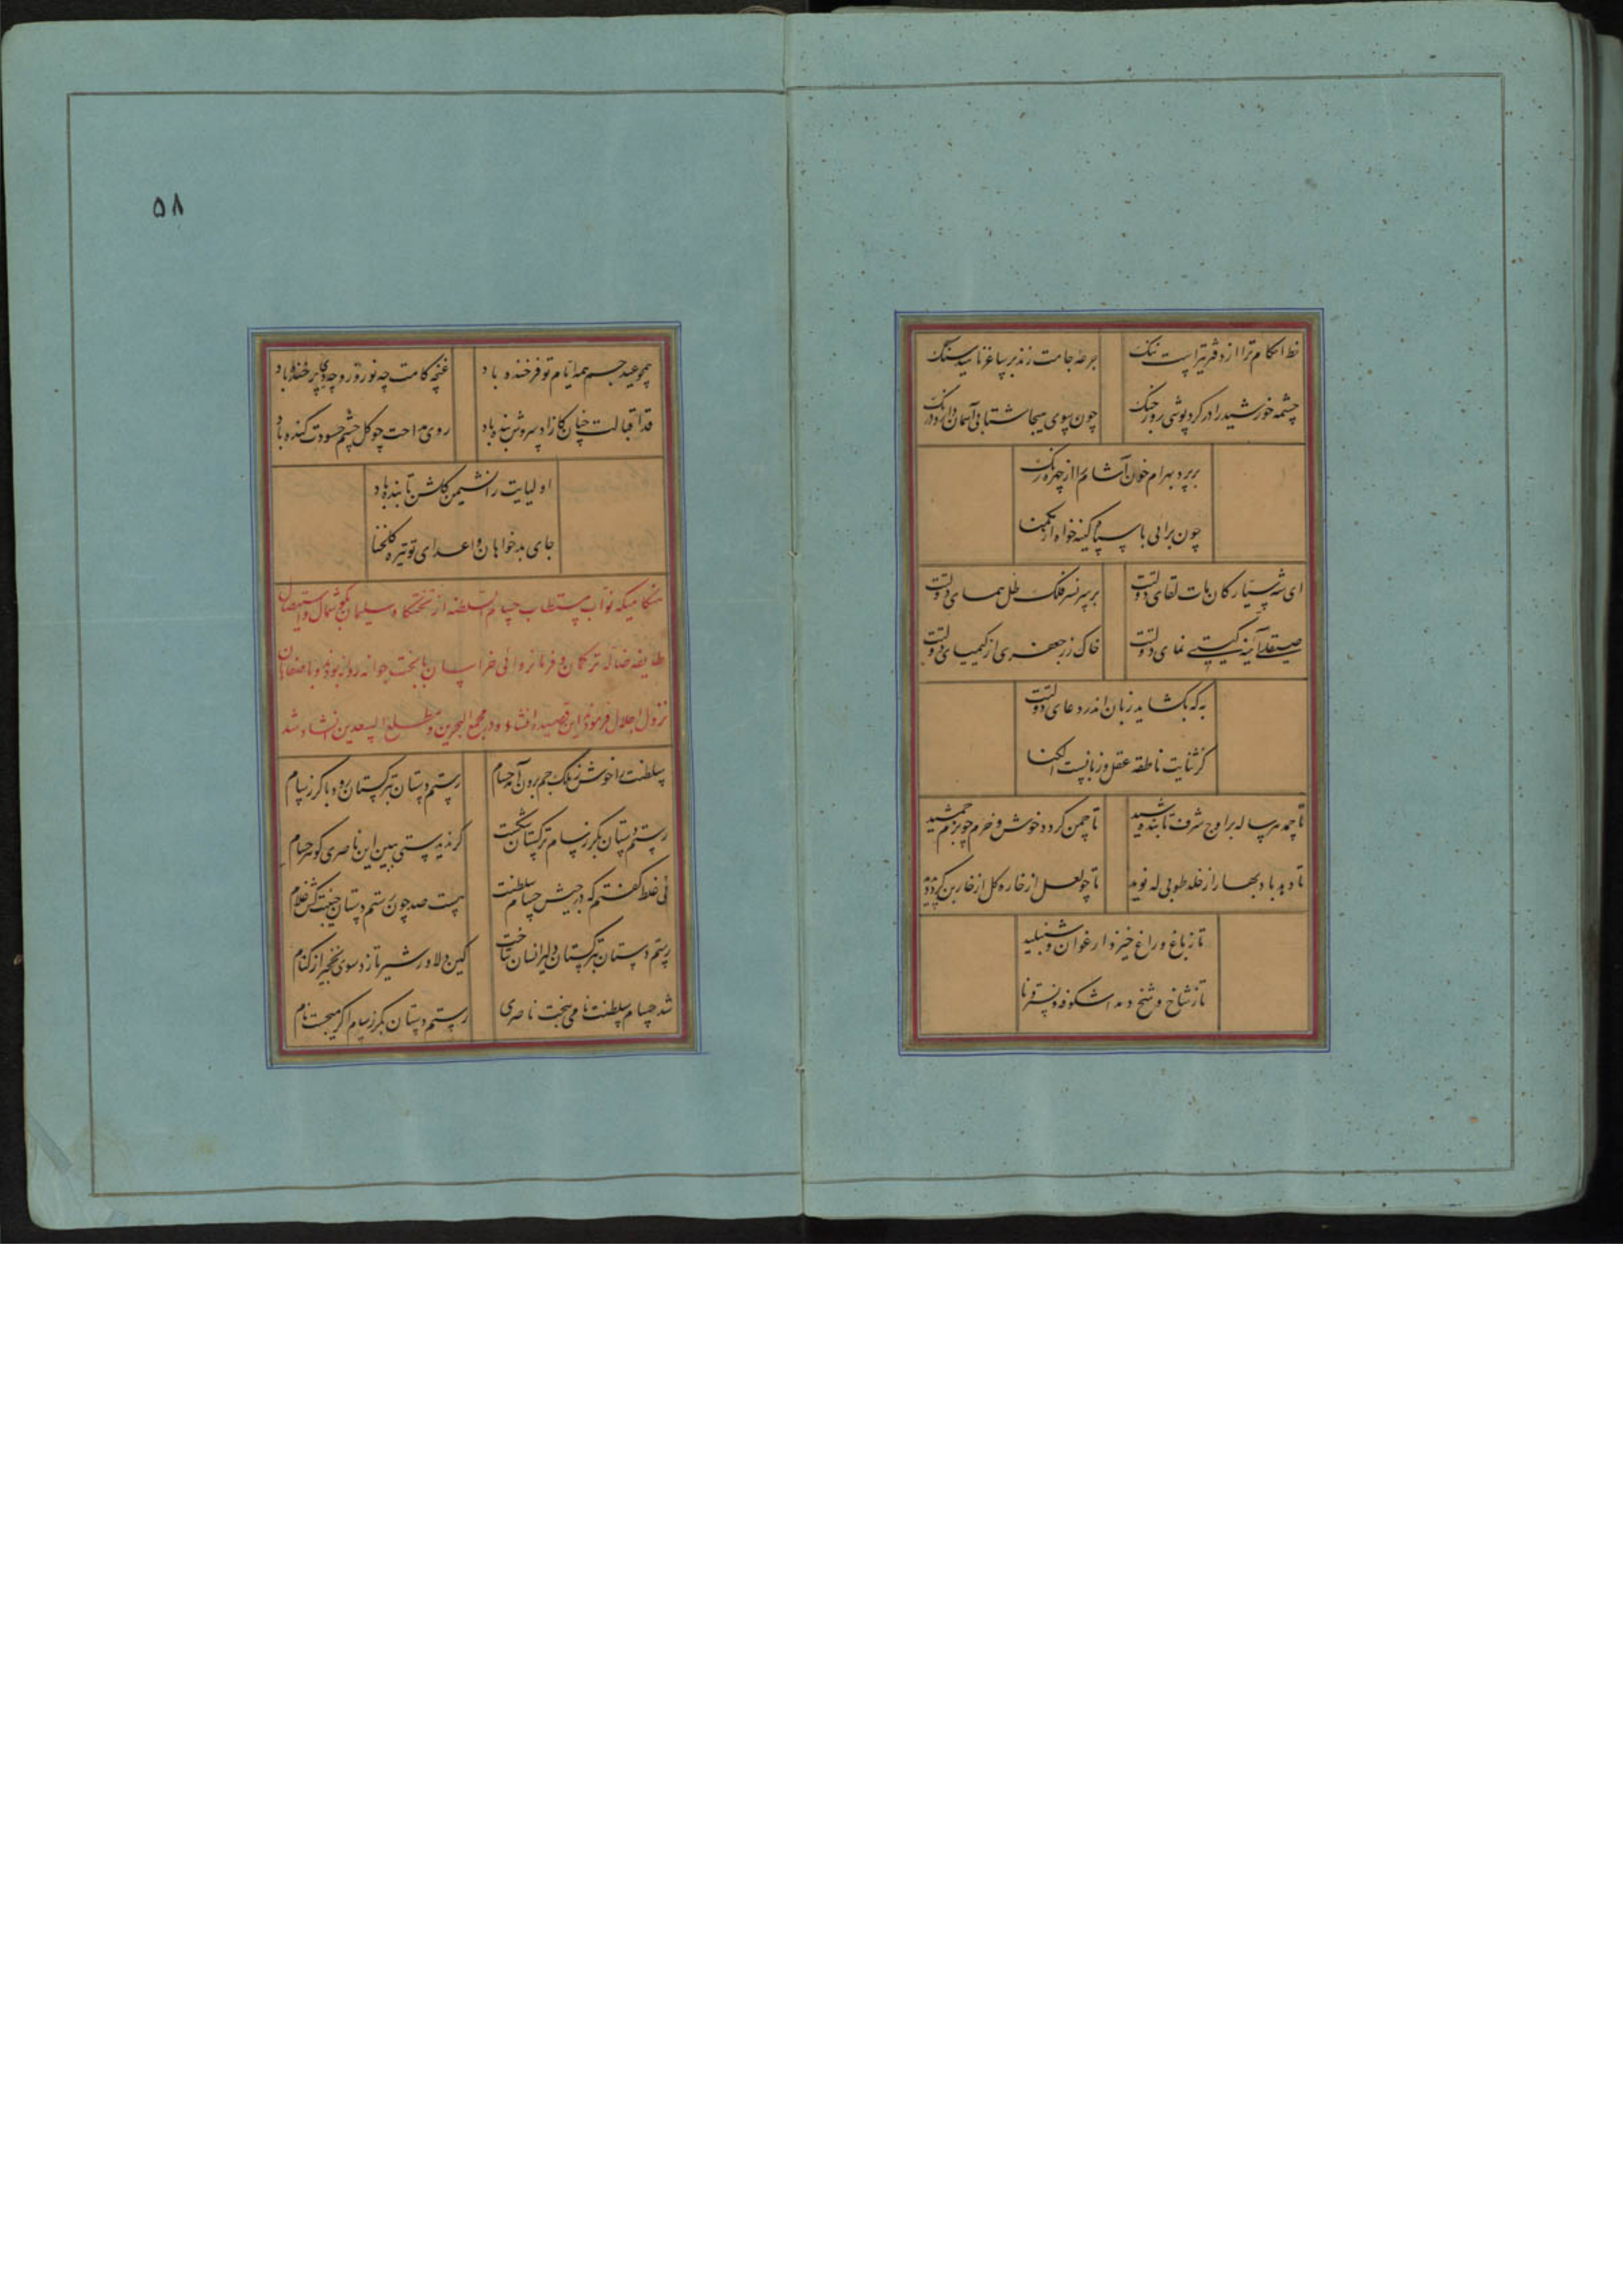 خط احکام ترا از دفتر تیر است ننگ
جرعه جامت زند بر ساغر ناهید سنگ
چشمه خورشید را در کرد پوشی روز جنگ
چون بسوی هیجا شتابی آسمان دارد درنگ
بپرد بهرام خون آشام را از چهره رنگ
چون برائی با سپاه کینه خواه از
ای شه سیارکان مات لقای دولتت
بر سر نسر فلک ظل همای دولتت
صیقل آئینه کیتی نمای دولتت
خاک زر جعفری از کیمیای دولتت
به که بکشاید زبان اندر دعای دولتت
کز ثنایت ناطقه عقل و زبانست الکنا
تا چمد هر ساله بر اوج شرف تابنده شید
تا چمن کردد خوش و خرم چو بزم جمشید
تا دهد باد بهار از خلد طوبی له نوید
تا چو لعل از خاره کل از خاربن کردد پدید
تا ز باغ و راغ خیزد ارغوان و شنبلید
تا ز شاخ و شخ دمد اشکوفه و نسترنا
۵۸
همچو عید جم همه ایام تو فرخنده باد
غنچه کامت چه نوروز و چه دی پر خنده باد
قد اقبالت چنان کازاد سروش بنده باد
روی مداحت چو کل چشم حسودت کنده باد
اولیایت را نشیمن کلشن تابنده باد
جای بدخواهان و اعدای تو تیره کلخنا
هنکامیکه نواب مستطاب حسام السلطنه از تختکاه سلیمان بکوچ شمال و استیصال
طایفه ضاله ترکمان و فرمانروائی خراسان با بخت جوان روانه بودند و باصفهان
نزول اجلال فرمودند این قصیده انشاء و در مجمع البحرین و مطلع السعدین انشاد شد
سلطنت را خوش ز ملک جم برون آمد حسام
رستم دستان بترکستان رود با کرز سام
رستم دستان بکرز سام ترکستان شکست
کر ندیدستی ببین این ناصری کوهر حسام
نی غلط کفتم که در جیش حسام سلطنت
هست صد چون رستم دستان جنیبت کش غلام
رستم دستان بترکستان دلیر انسان شتافت
کین دلاور شیر تازد سوی نخجیر از کنام
شد حسام سلطنت نامی ببخت ناصری
رستم دستان بکرز سام اکر میجست نام